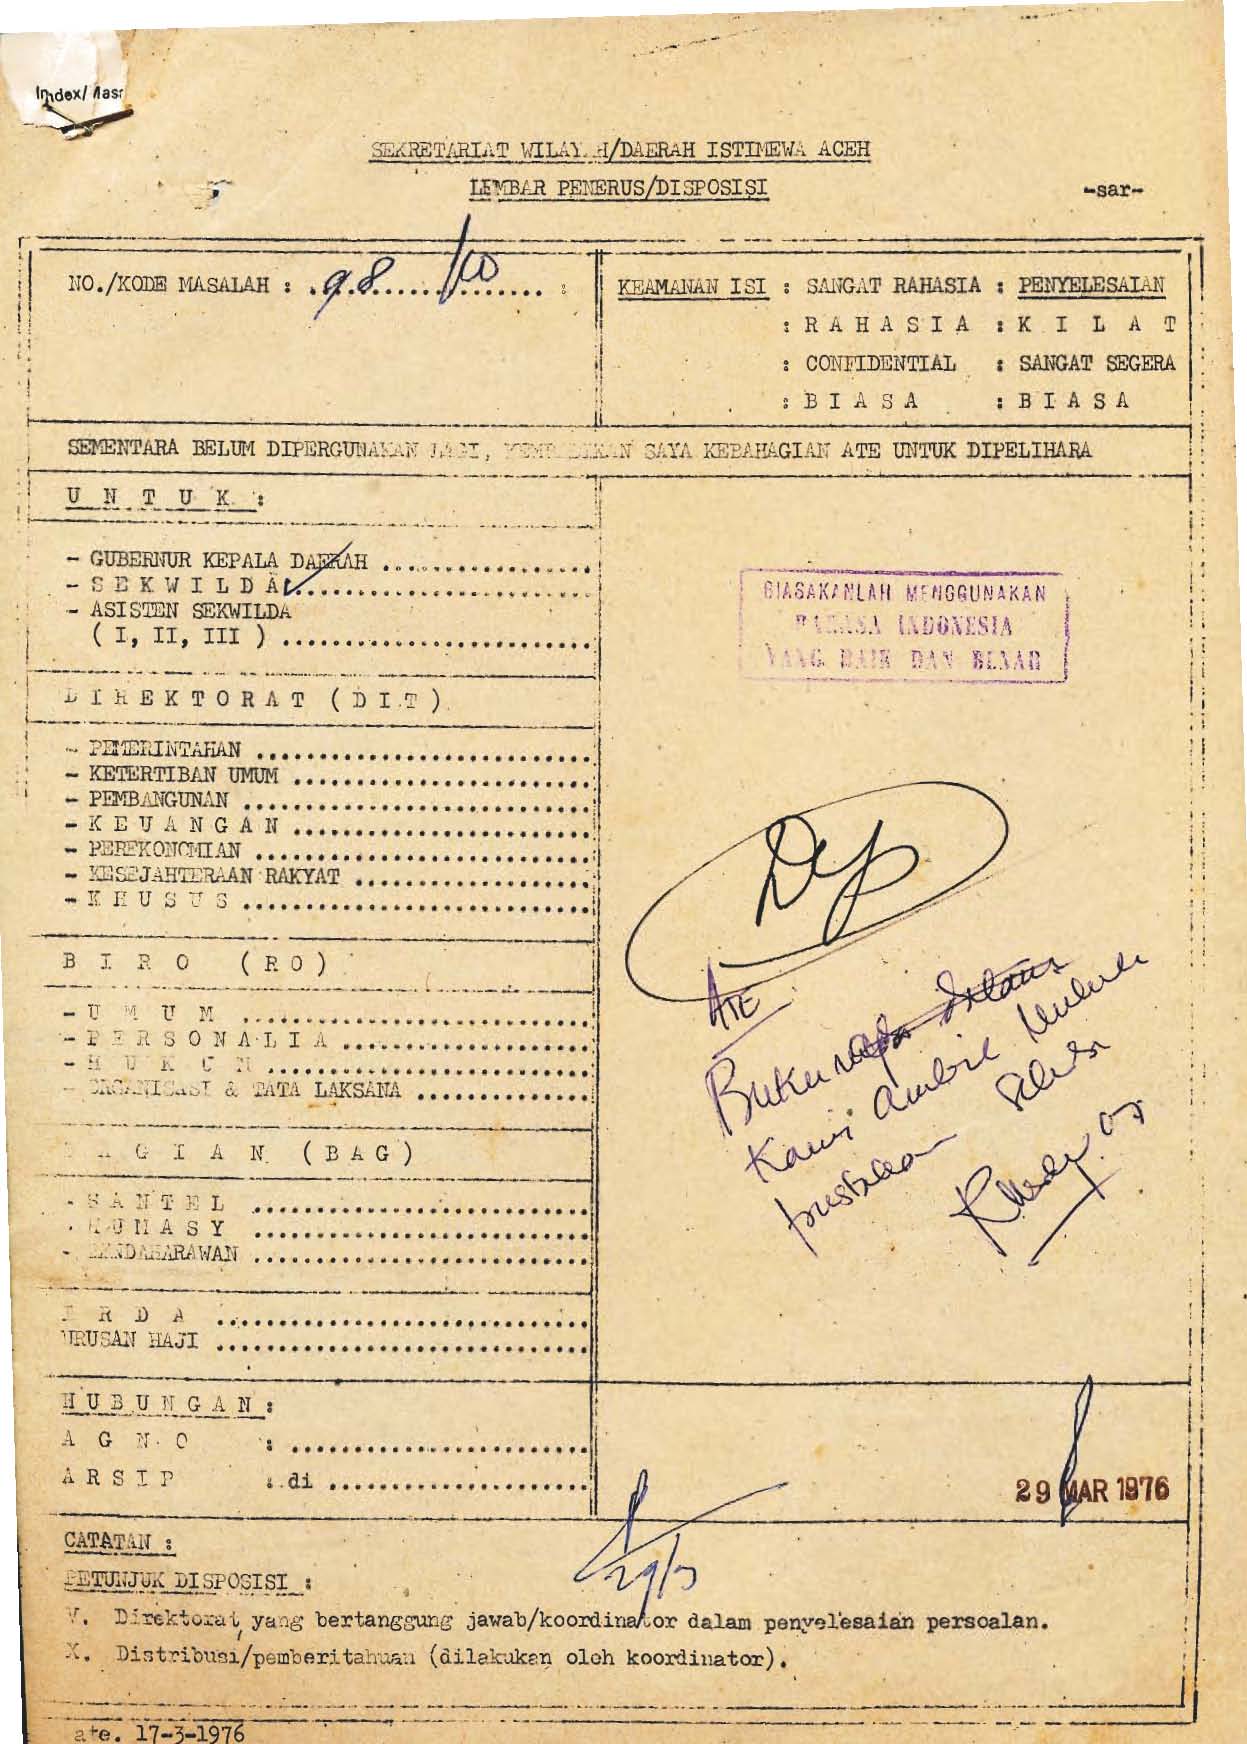 Index/
SEKRETARIAT WILAYAH/DAERAH ISTIMEWA ACEH
LEMBAR PENERUS/DISPOSISI
-sar-
NO./KODE MASALAH : .98....../.......... :
KEAMANAN ISI : SANGAT RAHASIA : PENYELESAIAN
: R A H A S I A : K I L A T
: CONFIDENTIAL : SANGAT SEGERA
: B I A S A : B I A S A
SEMENTARA BELUM DIPERGUNAKAN LAGI, KEMBALIKAN SAYA KEBAHAGIAN ATE UNTUK DIPELIHARA
U N T U K :
- GUBERNUR KEPALA DAERAH ..................
- S E K W I L D A ........................
- ASISTEN SEKWILDA
( I, II, III ) .........................
BIASAKANLAH MENGGUNAKAN
BAHASA INDONESIA
YANG BAIK DAN BENAR
D I R E K T O R A T ( D I T )
- PEMERINTAHAN ...........................
- KETERTIBAN UMUM ........................
- PEMBANGUNAN ............................
- K E U A N G A N ........................
- PEREKONOMIAN ...........................
- KESEJAHTERAAN RAKYAT ...................
- K H U S U S ............................
Dep
B I R O ( R O )
- U M U M ............................
- P E R S O N A L I A ....................
- H U K U M ..........................
- ORGANISASI & TATA LAKSANA ..............
ATE
Buku
Kami ambil
B A G I A N ( B A G )
- S A N T E L ...........................
- H U M A S Y ...........................
- BENDAHARAWAN ...........................
I R D A ..............................
URUSAN HAJI ..............................
H U B U N G A N :
A G N O : ........................
A R S I P : di .....................
29 MAR 1976
29/3
CATATAN :
PETUNJUK DISPOSISI :
V. Direktorat yang bertanggung jawab/koordinator dalam penyelesaian persoalan.
X. Distribusi/pemberitahuan (dilakukan oleh koordinator).
ate. 17-3-1976